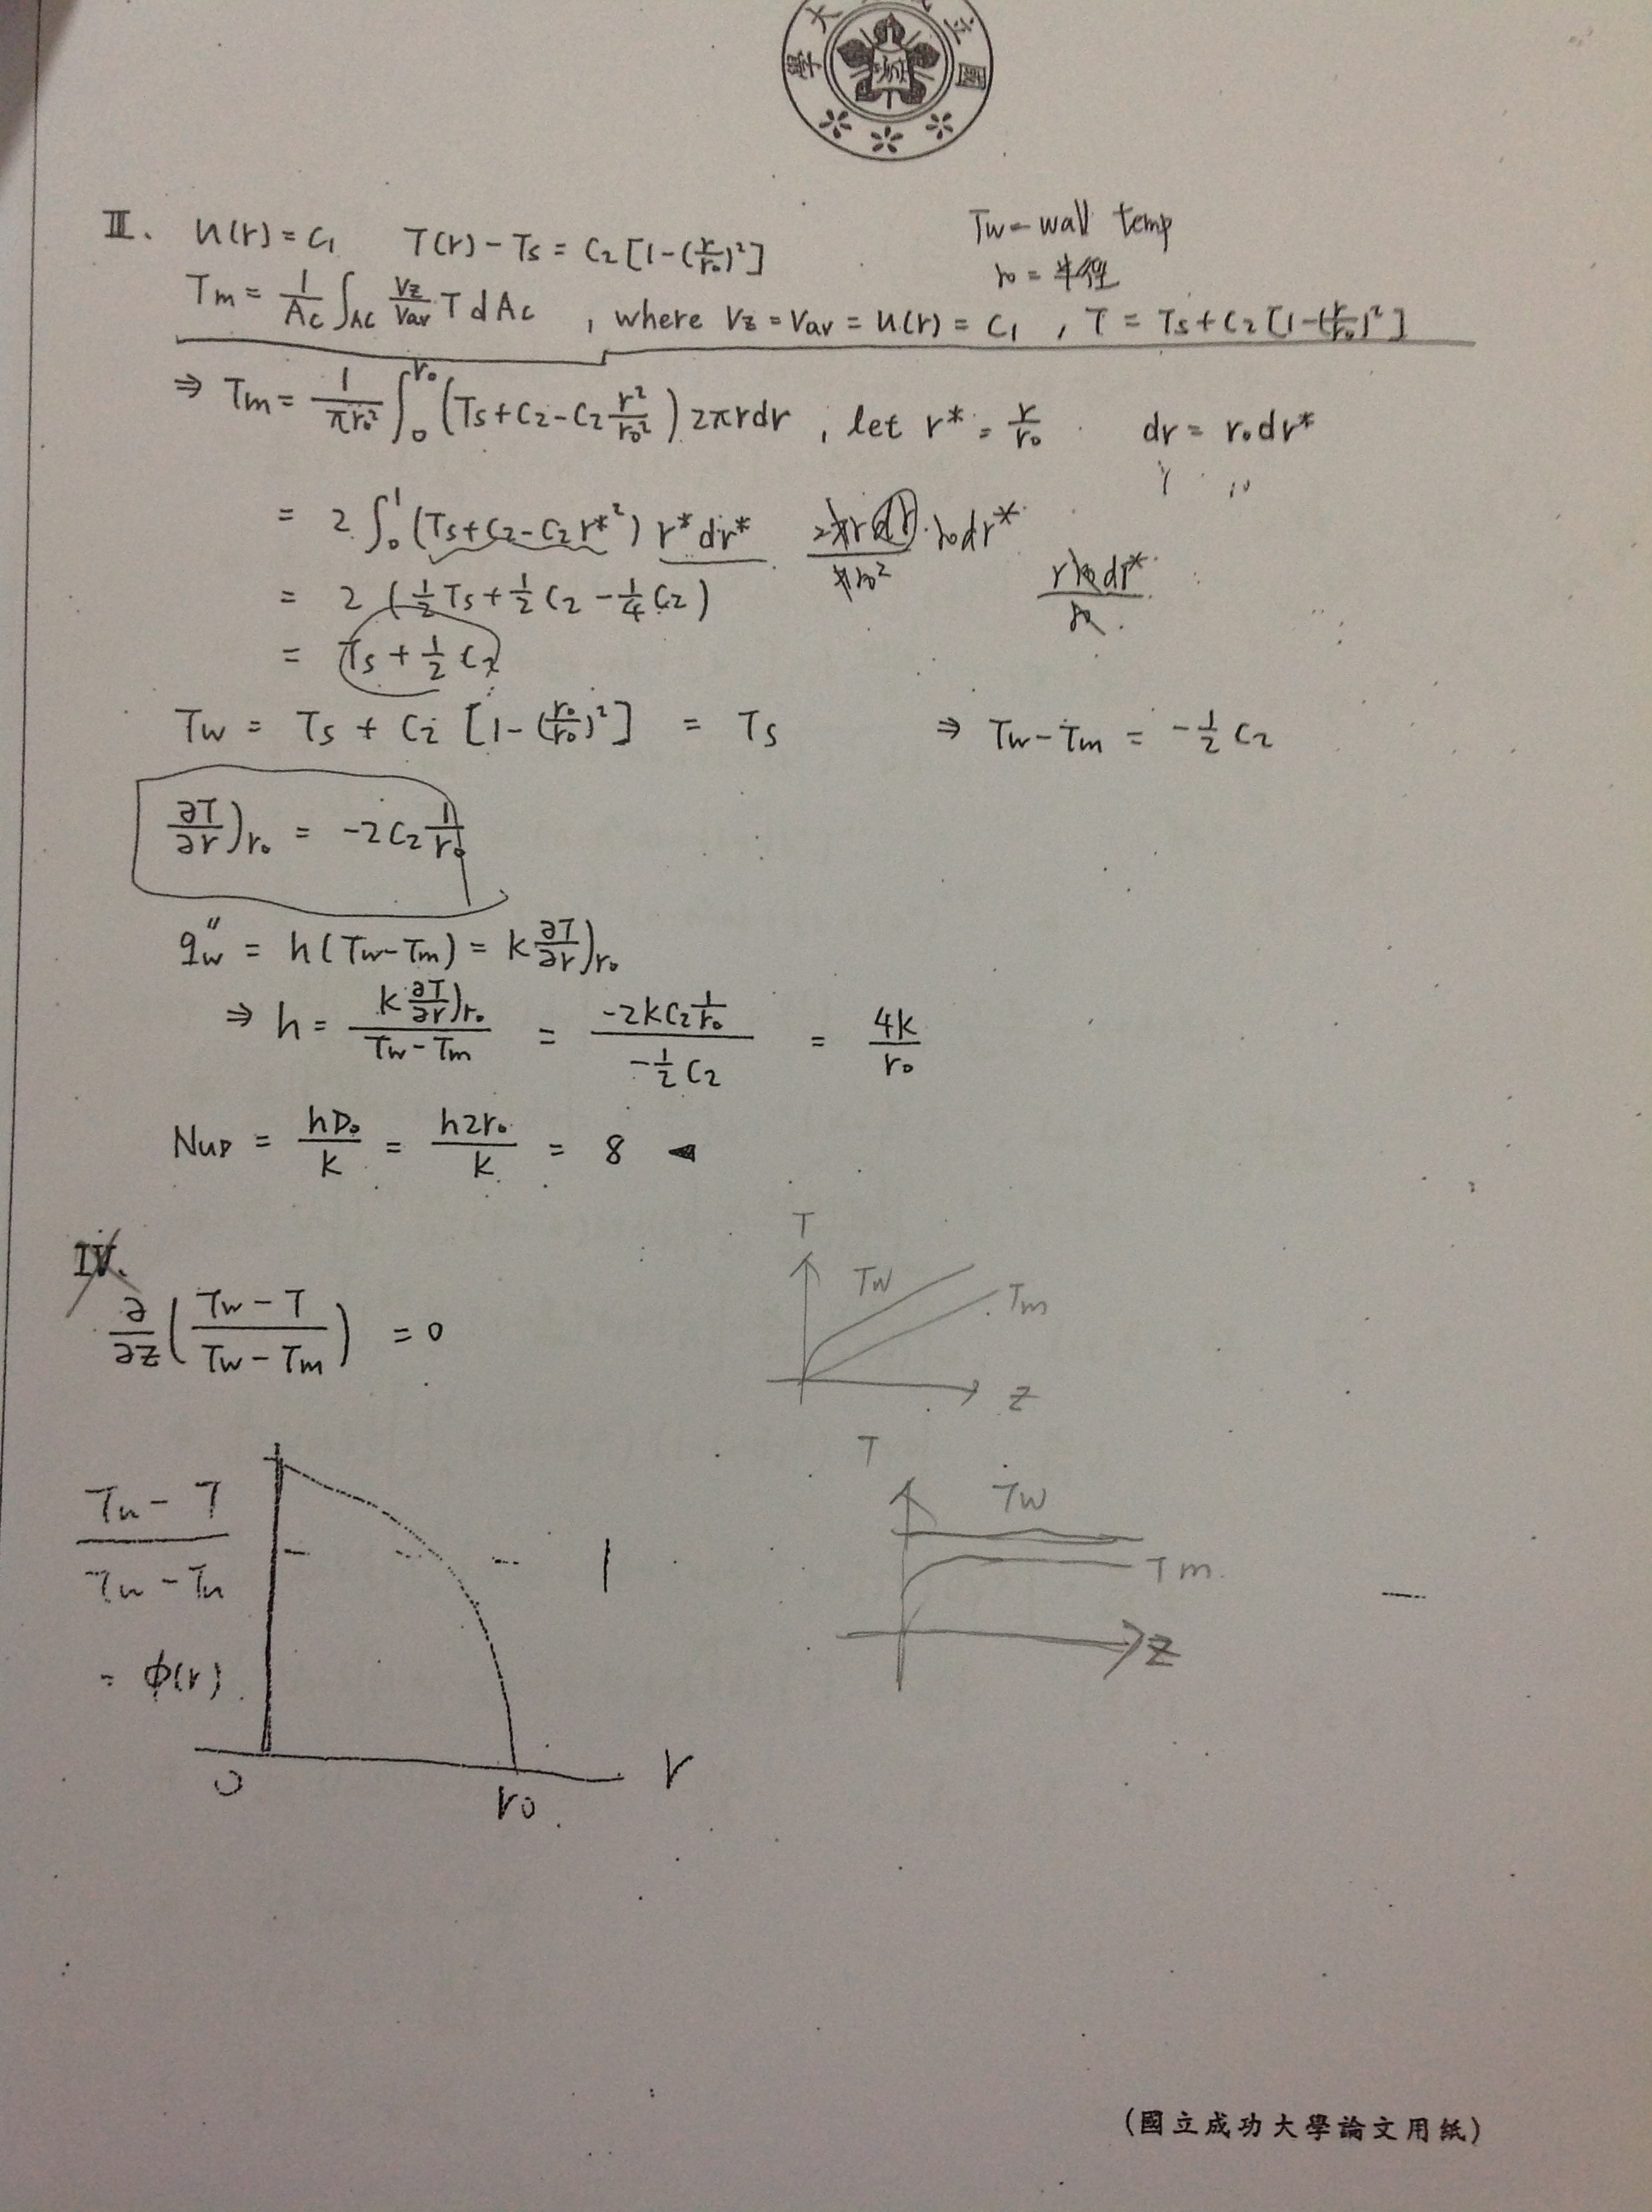 大 立
學 國
III. u(r) = C₁ T(r) - Ts = C₂ [1-(r/r₀)²]
Tw = wall temp
r₀ = 半徑
Tm = 1/Ac ∫Ac Vz/Vav T dAc , where Vz = Vav = u(r) = C₁ , T = Ts + C₂ [1-(r/r₀)²]
⇒ Tm = 1/πr₀² ∫₀^r₀ (Ts + C₂ - C₂ r²/r₀²) 2πrdr , let r* = r/r₀ dr = r₀dr*
= 2 ∫₀¹ (Ts + C₂ - C₂r*²) r* dr*
= 2 (½Ts + ½C₂ - ¼C₂)
= Ts + ½C₂
Tw = Ts + C₂ [1-(r₀/r₀)²] = Ts ⇒ Tw - Tm = -½C₂
∂T/∂r)r₀ = -2C₂ 1/r₀
q"w = h(Tw-Tm) = k ∂T/∂r)r₀
⇒ h = k ∂T/∂r)r₀ / Tw-Tm = -2kC₂ 1/r₀ / -½C₂ = 4k/r₀
NuD = hD₀/k = h2r₀/k = 8 ◄
IV.
∂/∂z (Tw-T / Tw-Tm) = 0
T
Tw
Tm
z
T
Tw
Tm
z
1
= φ(r)
0 r₀ r
(國立成功大學論文用紙)